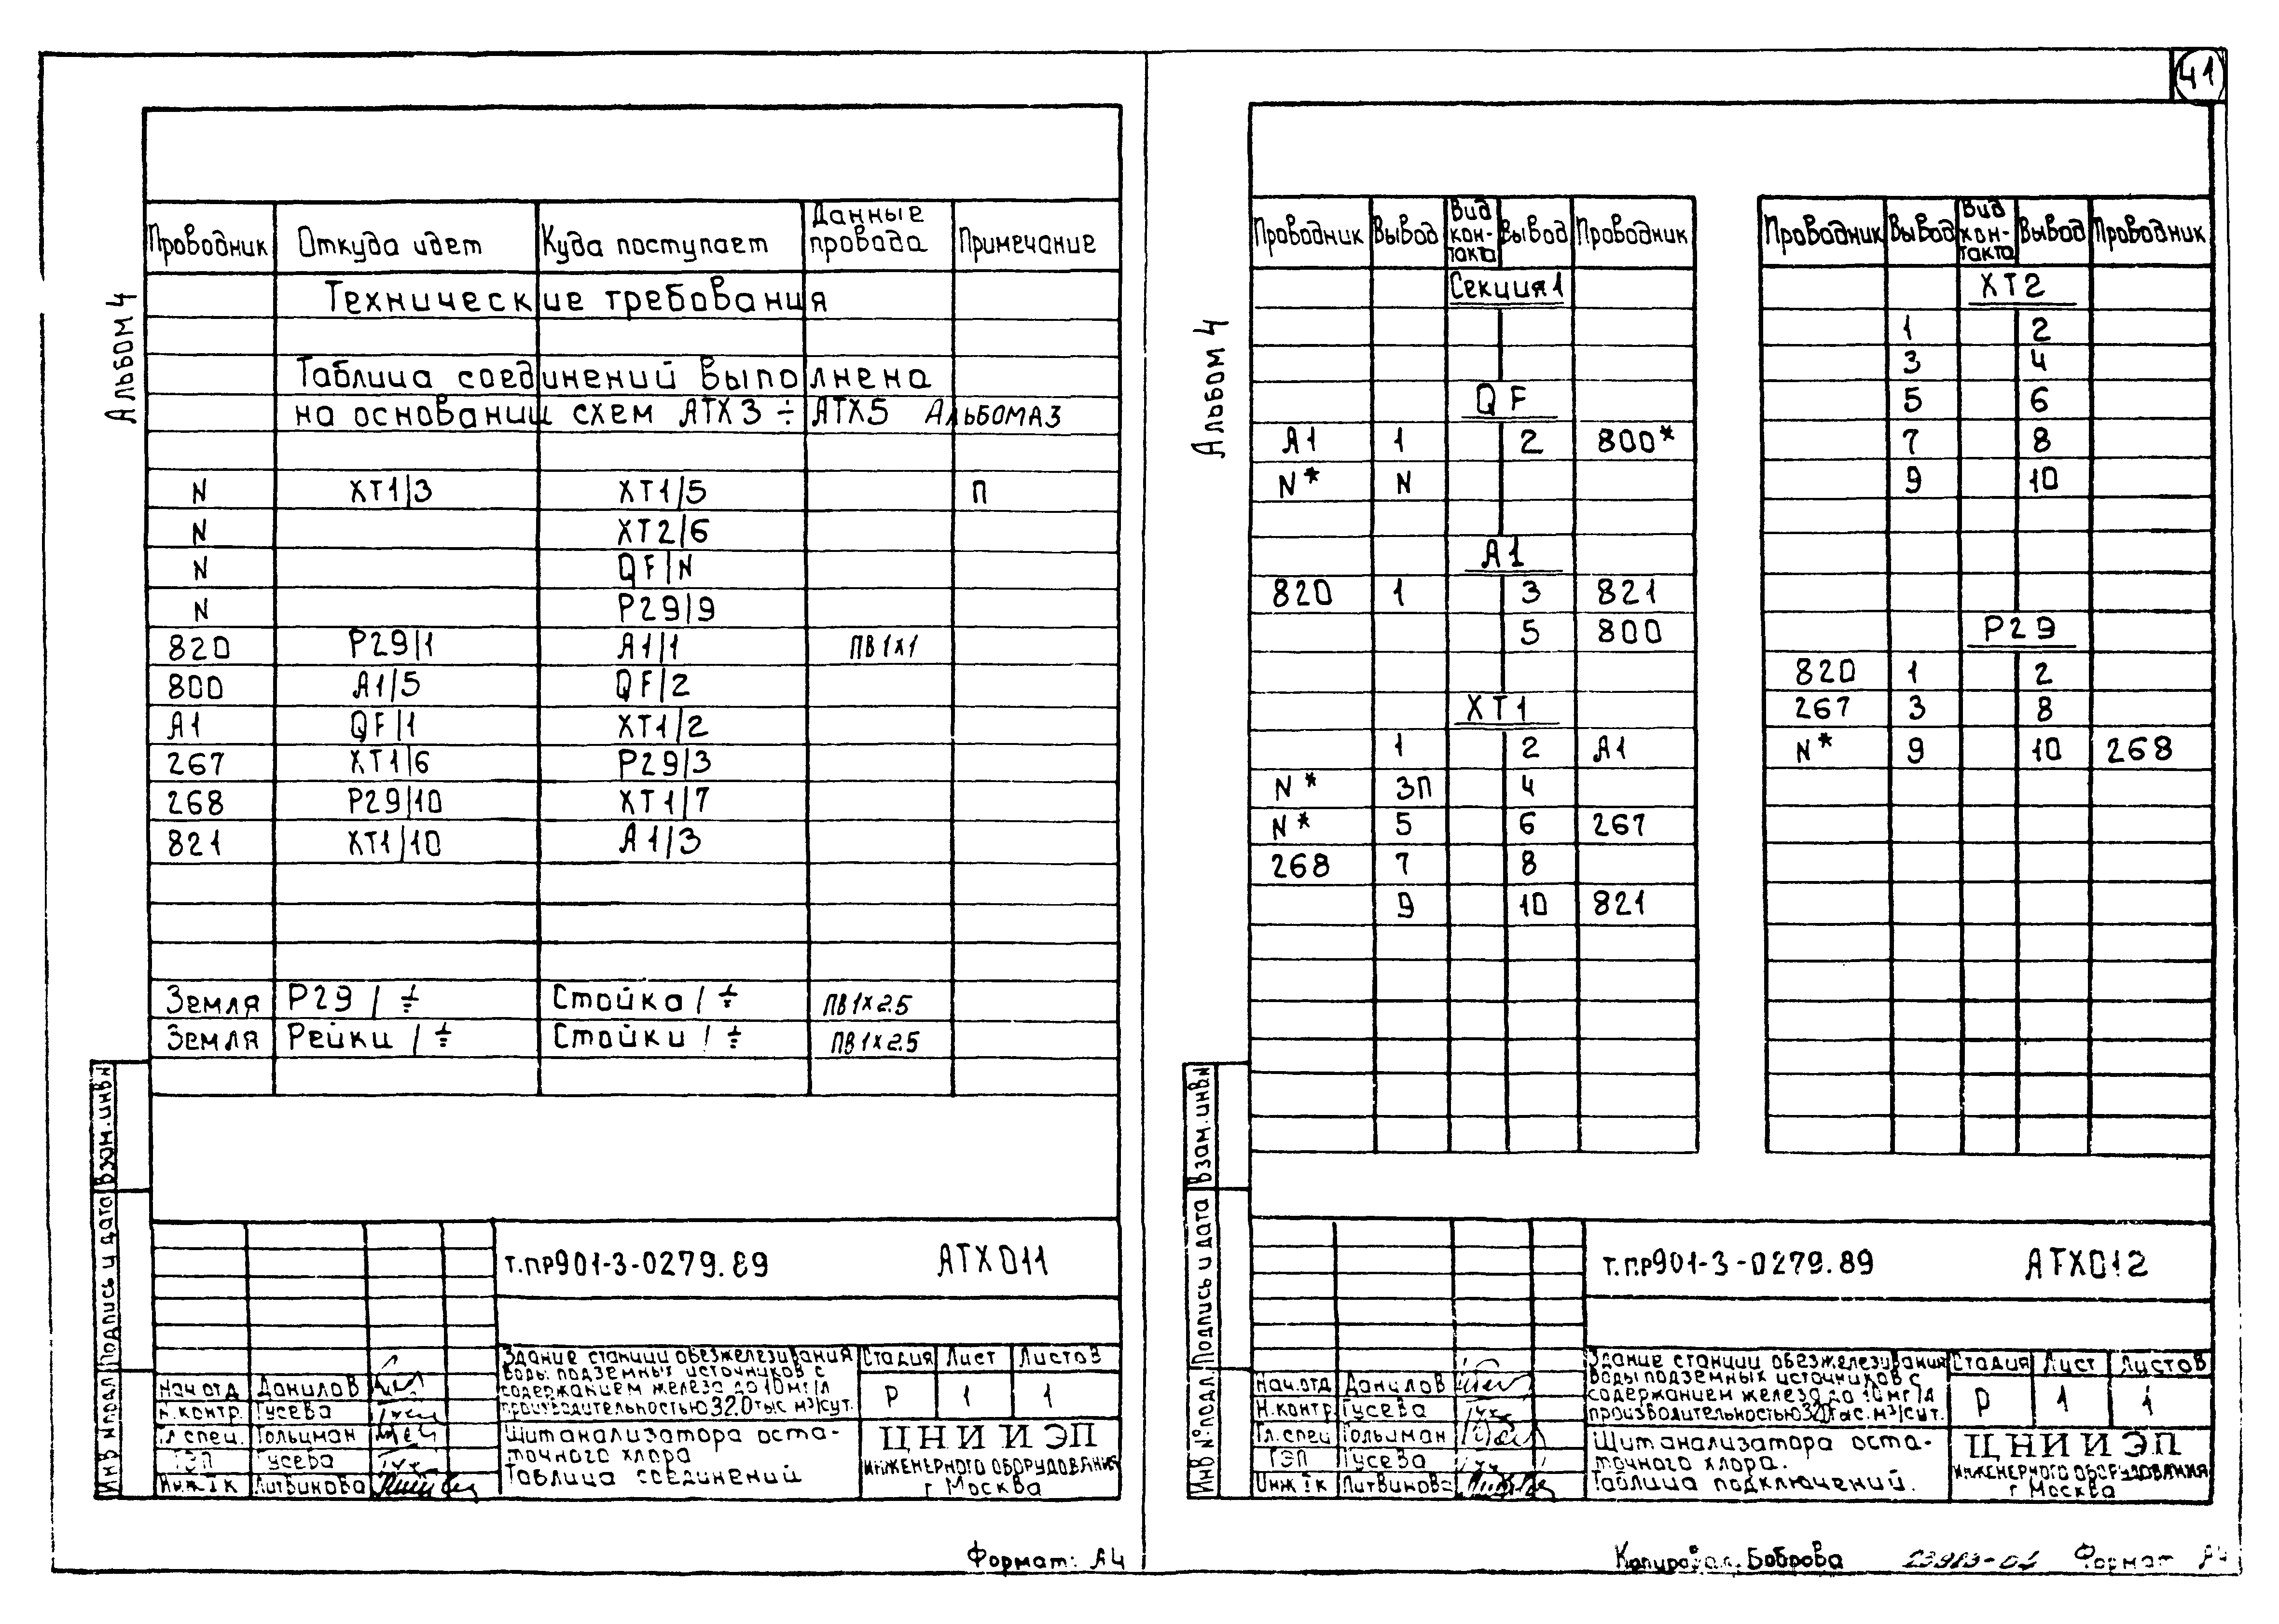 41
Альбом 4
Проводник Откуда идет Куда поступает Данные провода Примечание
Технические требования
Таблица соединений выполнена
на основании схем АТХ3 ÷ АТХ5 Альбома3
N ХТ1/3 ХТ1/5 П
N ХТ2/6
N QF/N
N Р29/9
820 Р29/1 А1/1 ПВ 1х1
800 А1/5 QF/2
А1 QF/1 ХТ1/2
267 ХТ1/6 Р29/3
268 Р29/10 ХТ1/7
821 ХТ1/10 А1/3
Земля Р29 / ⏚ Стойка / ⏚ ПВ 1х2.5
Земля Рейки / ⏚ Стойки / ⏚ ПВ 1х2.5
Инв № подл. Подпись и дата Взам. инв №
Т.ПР901-3-0279.89 АТХ011
Здание станции обезжелезивания
воды подземных источников с
содержанием железа до 10мг/л
производительностью 32.0 тыс м³/сут.
Стадия Лист Листов
Р 1 1
Нач отд Данилов
Н.контр. Гусева
Гл.спец. Гольцман
ГЭП Гусева
Инж Iк Литвинова
Щит анализатора оста-
точного хлора
Таблица соединений
ЦНИИЭП
инженерного оборудования
г Москва
Формат: А4
Альбом 4
Проводник Вывод Вид кон-такта Вывод Проводник
Секция1
QF
А1 1 2 800*
N* N
А1
820 1 3 821
5 800
ХТ1
1 2 А1
N* 3П 4
N* 5 6 267
268 7 8
9 10 821
Проводник Вывод Вид кон-такта Вывод Проводник
ХТ2
1 2
3 4
5 6
7 8
9 10
Р29
820 1 2
267 3 8
N* 9 10 268
Инв № подл. Подпись и дата Взам. инв №
Т.ПР901-3-0279.89 АТХ012
Здание станции обезжелезивания
воды подземных источников с
содержанием железа до 10мг/л
производительностью 32.0 тыс. м³/сут.
Стадия Лист Листов
Р 1 1
Нач.отд Данилов
Н.контр Гусева
Гл.спец Гольцман
ГЭП Гусева
Инж Iк Литвинова
Щит анализатора оста-
точного хлора.
Таблица подключений.
ЦНИИЭП
инженерного оборудования
г Москва
Копировал. Боброва Формат А4